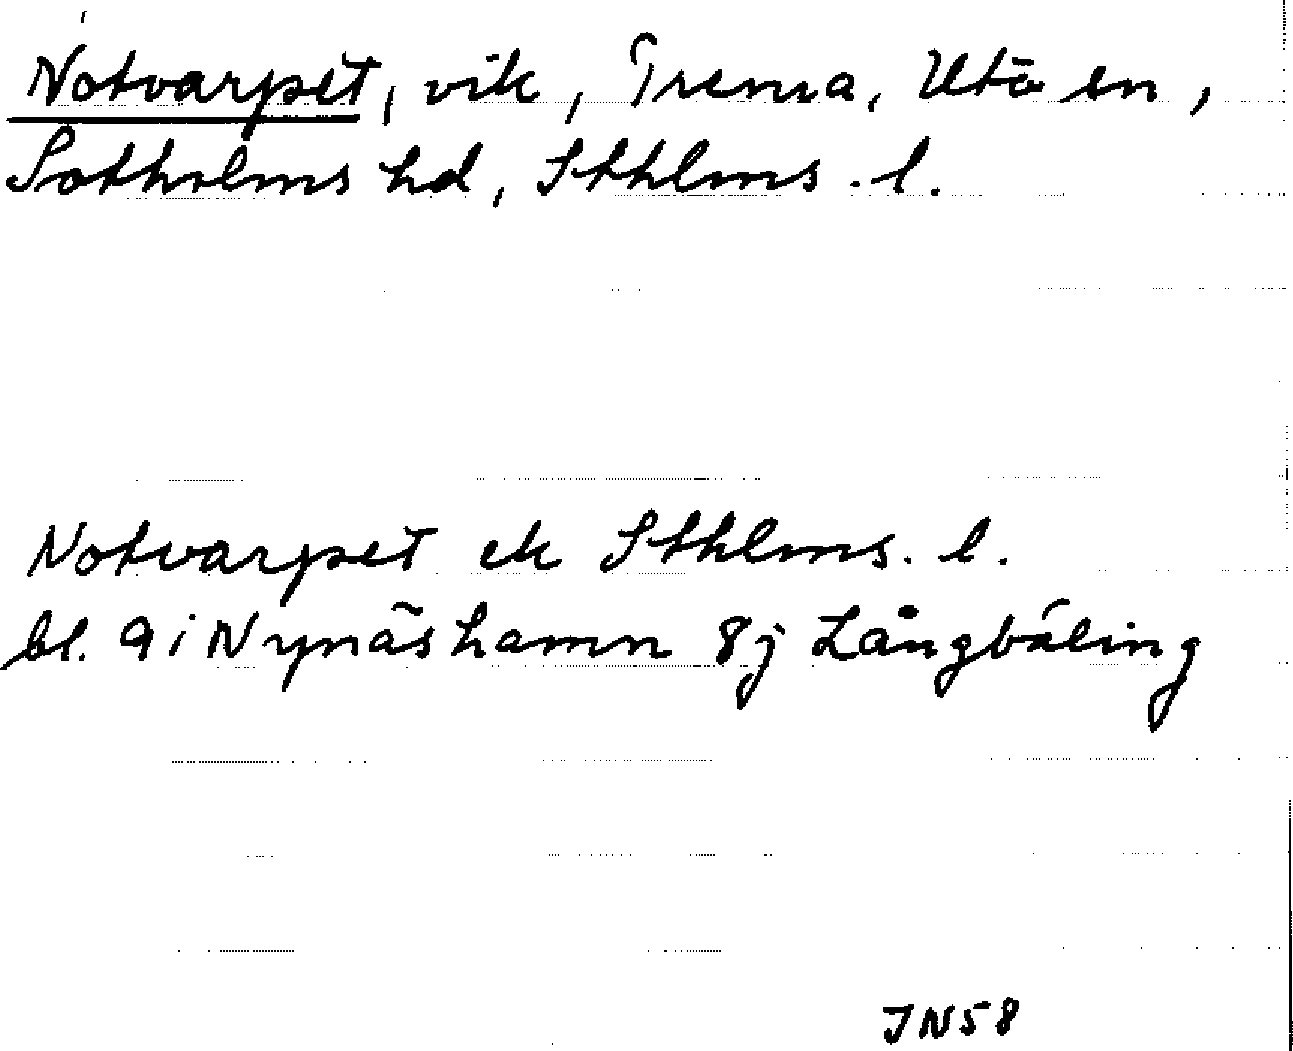 Notvarpet, vik, Trema, Utö en,
Sotholms hd, Sthlms. l.
Notvarpet ek Sthlms. l.
bl. 9 i Nynäshamn 8j Långbäling
JN58